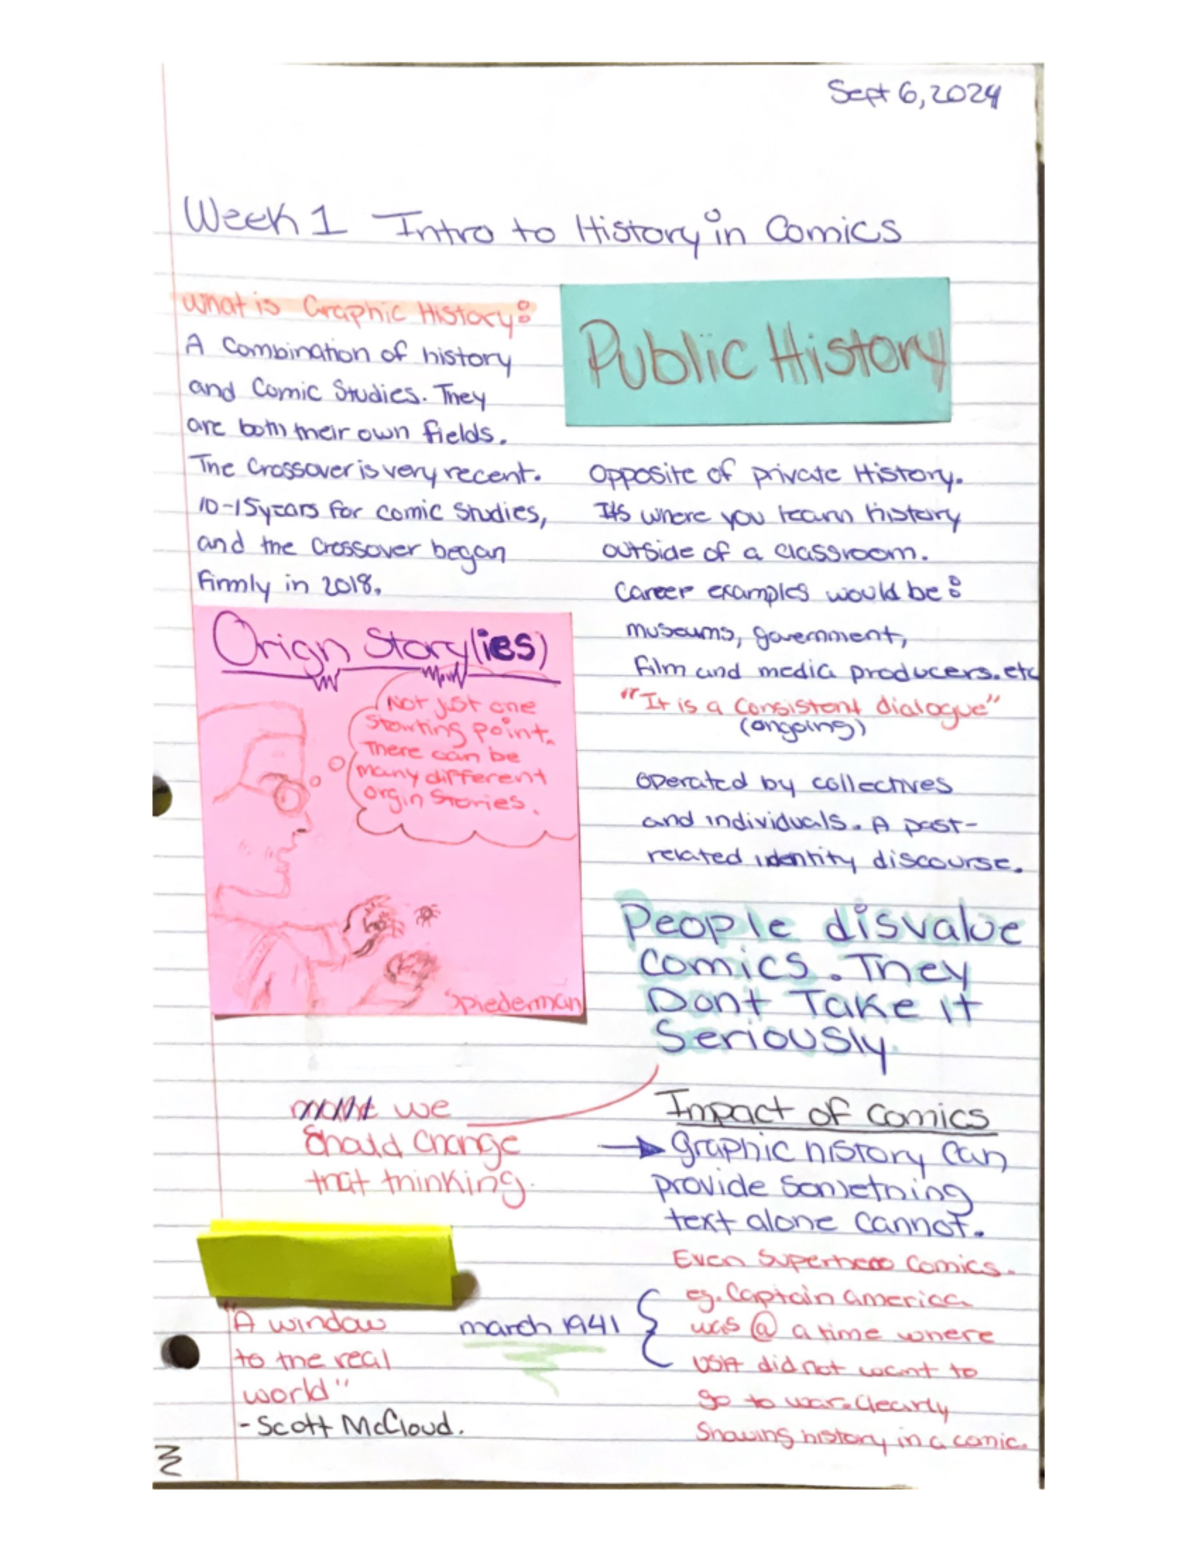 Sept 6, 2024
Week 1 Intro to History in Comics
What is Graphic History:
A Combination of history
and Comic Studies. They
are both their own fields.
The Crossover is very recent.
10-15 years for comic studies,
and the Crossover began
firmly in 2018.
Orign Story(ies)
Not just one
starting point.
There can be
many different
orgin stories.
Spiederman
Public History
Opposite of private History.
Its where you learn history
outside of a classroom.
Career examples would be:
museums, government,
film and media producers. etc
"It is a consistent dialogue"
(ongoing)
operated by collectives
and individuals. A past-
related identity discourse.
People disvalue
Comics. They
Dont Take it
Seriously.
we
Should Change
that thinking.
Impact of Comics
→ graphic history can
provide something
text alone cannot.
Even Superhero Comics.
eg. Captain america
was @ a time where
USA did not want to
go to war. Clearly
Showing history in a comic.
march 1941
"A window
to the real
world"
- Scott McCloud.